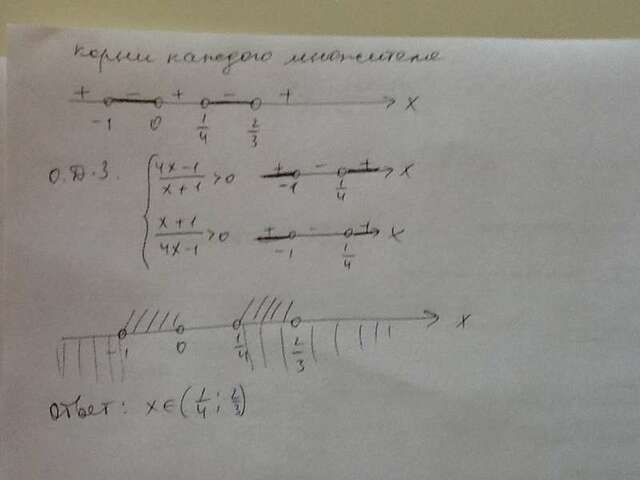 корни каждого множителя
+ - + - + x
-1 0 1/4 2/3
О.Д.З. { (4x-1)/(x+1) > 0 + - + x
-1 1/4
(x+1)/(4x-1) > 0 + - + x
-1 1/4
x
-1 0 1/4 2/3
ответ: x∈(1/4; 2/3)